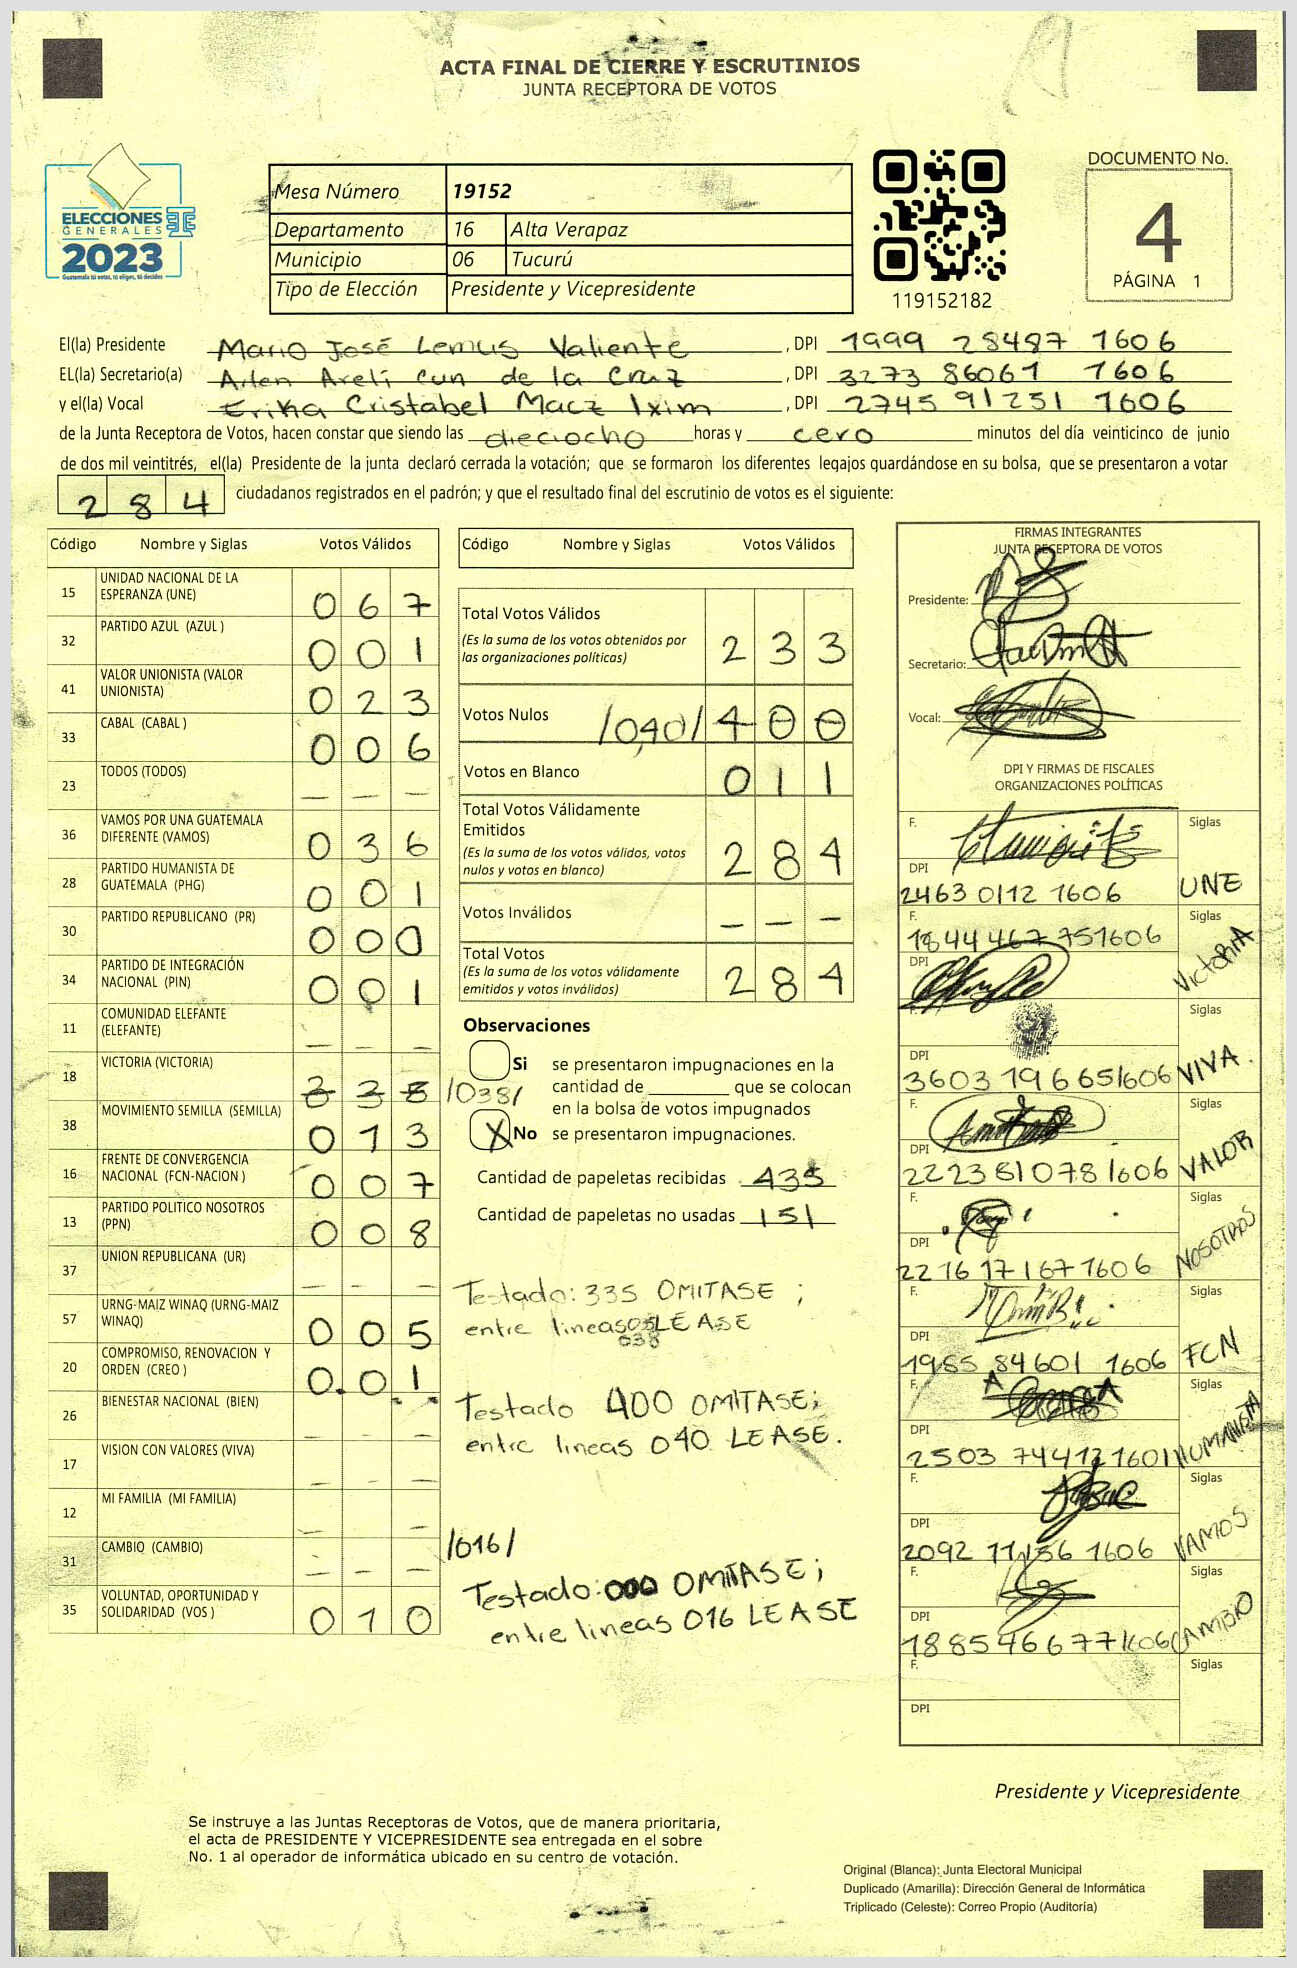 ACTA FINAL DE CIERRE Y ESCRUTINIOS
JUNTA RECEPTORA DE VOTOS
ELECCIONES
GENERALES
2023
Guatemala tú votas, tú eliges, tú decides
Mesa Número 19152
Departamento 16 Alta Verapaz
Municipio 06 Tucurú
Tipo de Elección Presidente y Vicepresidente
119152182
DOCUMENTO No.
4
PÁGINA 1
El(la) Presidente Mario José Lemus Valiente , DPI 1999 28487 1606
EL(la) Secretario(a) Arlen Areli Cun de la Cruz , DPI 3273 86061 1606
y el(la) Vocal Erika Cristabel Macz Ixim , DPI 2745 91251 1606
de la Junta Receptora de Votos, hacen constar que siendo las dieciocho horas y cero minutos del día veinticinco de junio
de dos mil veintitrés, el(la) Presidente de la junta declaró cerrada la votación; que se formaron los diferentes legajos guardándose en su bolsa, que se presentaron a votar
284 ciudadanos registrados en el padrón; y que el resultado final del escrutinio de votos es el siguiente:
Código Nombre y Siglas Votos Válidos
15 UNIDAD NACIONAL DE LA ESPERANZA (UNE) 067
32 PARTIDO AZUL (AZUL ) 001
41 VALOR UNIONISTA (VALOR UNIONISTA) 023
33 CABAL (CABAL ) 006
23 TODOS (TODOS) - - -
36 VAMOS POR UNA GUATEMALA DIFERENTE (VAMOS) 036
28 PARTIDO HUMANISTA DE GUATEMALA (PHG) 001
30 PARTIDO REPUBLICANO (PR) 000
34 PARTIDO DE INTEGRACIÓN NACIONAL (PIN) 001
11 COMUNIDAD ELEFANTE (ELEFANTE) - - -
18 VICTORIA (VICTORIA) 335 /038/
38 MOVIMIENTO SEMILLA (SEMILLA) 013
16 FRENTE DE CONVERGENCIA NACIONAL (FCN-NACION ) 007
13 PARTIDO POLITICO NOSOTROS (PPN) 008
37 UNION REPUBLICANA (UR) - - -
57 URNG-MAIZ WINAQ (URNG-MAIZ WINAQ) 005
20 COMPROMISO, RENOVACION Y ORDEN (CREO ) 001
26 BIENESTAR NACIONAL (BIEN) - - -
17 VISION CON VALORES (VIVA) - - -
12 MI FAMILIA (MI FAMILIA) - -
31 CAMBIO (CAMBIO) - - - /016/
35 VOLUNTAD, OPORTUNIDAD Y SOLIDARIDAD (VOS ) 010
Código Nombre y Siglas Votos Válidos
Total Votos Válidos 233
(Es la suma de los votos obtenidos por
las organizaciones políticas)
Votos Nulos /040/ 400
Votos en Blanco 011
Total Votos Válidamente
Emitidos 284
(Es la suma de los votos válidos, votos
nulos y votos en blanco)
Votos Inválidos - - -
Total Votos 284
(Es la suma de los votos válidamente
emitidos y votos inválidos)
Observaciones
Si se presentaron impugnaciones en la
cantidad de que se colocan
en la bolsa de votos impugnados
X No se presentaron impugnaciones.
Cantidad de papeletas recibidas 435
Cantidad de papeletas no usadas 151
Testado: 335 OMITASE ;
entre lineas LEASE
038
Testado 400 OMITASE;
entre lineas 040 LEASE.
Testado: 000 OMITASE;
entre lineas 016 LEASE
FIRMAS INTEGRANTES
JUNTA RECEPTORA DE VOTOS
Presidente:
Secretario:
Vocal:
DPI Y FIRMAS DE FISCALES
ORGANIZACIONES POLÍTICAS
F. Siglas
DPI
2463 0112 1606 UNE
F. Siglas
1844 467 751606
DPI VICTORIA
F. Siglas
DPI
3603 19 6651606 VIVA.
F. Siglas
DPI
2223810781606 VALOR
F. Siglas
DPI
22 16 17167 1606 NOSOTROS
F. Siglas
DPI
1955 84601 1606 FCN
F. Siglas
DPI
2503 74412 1601 HUMANISTA
F. Siglas
DPI
2092 11156 1606 VAMOS
F. Siglas
DPI
1885466771606 CAMBIO
F. Siglas
DPI
Presidente y Vicepresidente
Se instruye a las Juntas Receptoras de Votos, que de manera prioritaria,
el acta de PRESIDENTE Y VICEPRESIDENTE sea entregada en el sobre
No. 1 al operador de informática ubicado en su centro de votación.
Original (Blanca): Junta Electoral Municipal
Duplicado (Amarilla): Dirección General de Informática
Triplicado (Celeste): Correo Propio (Auditoría)